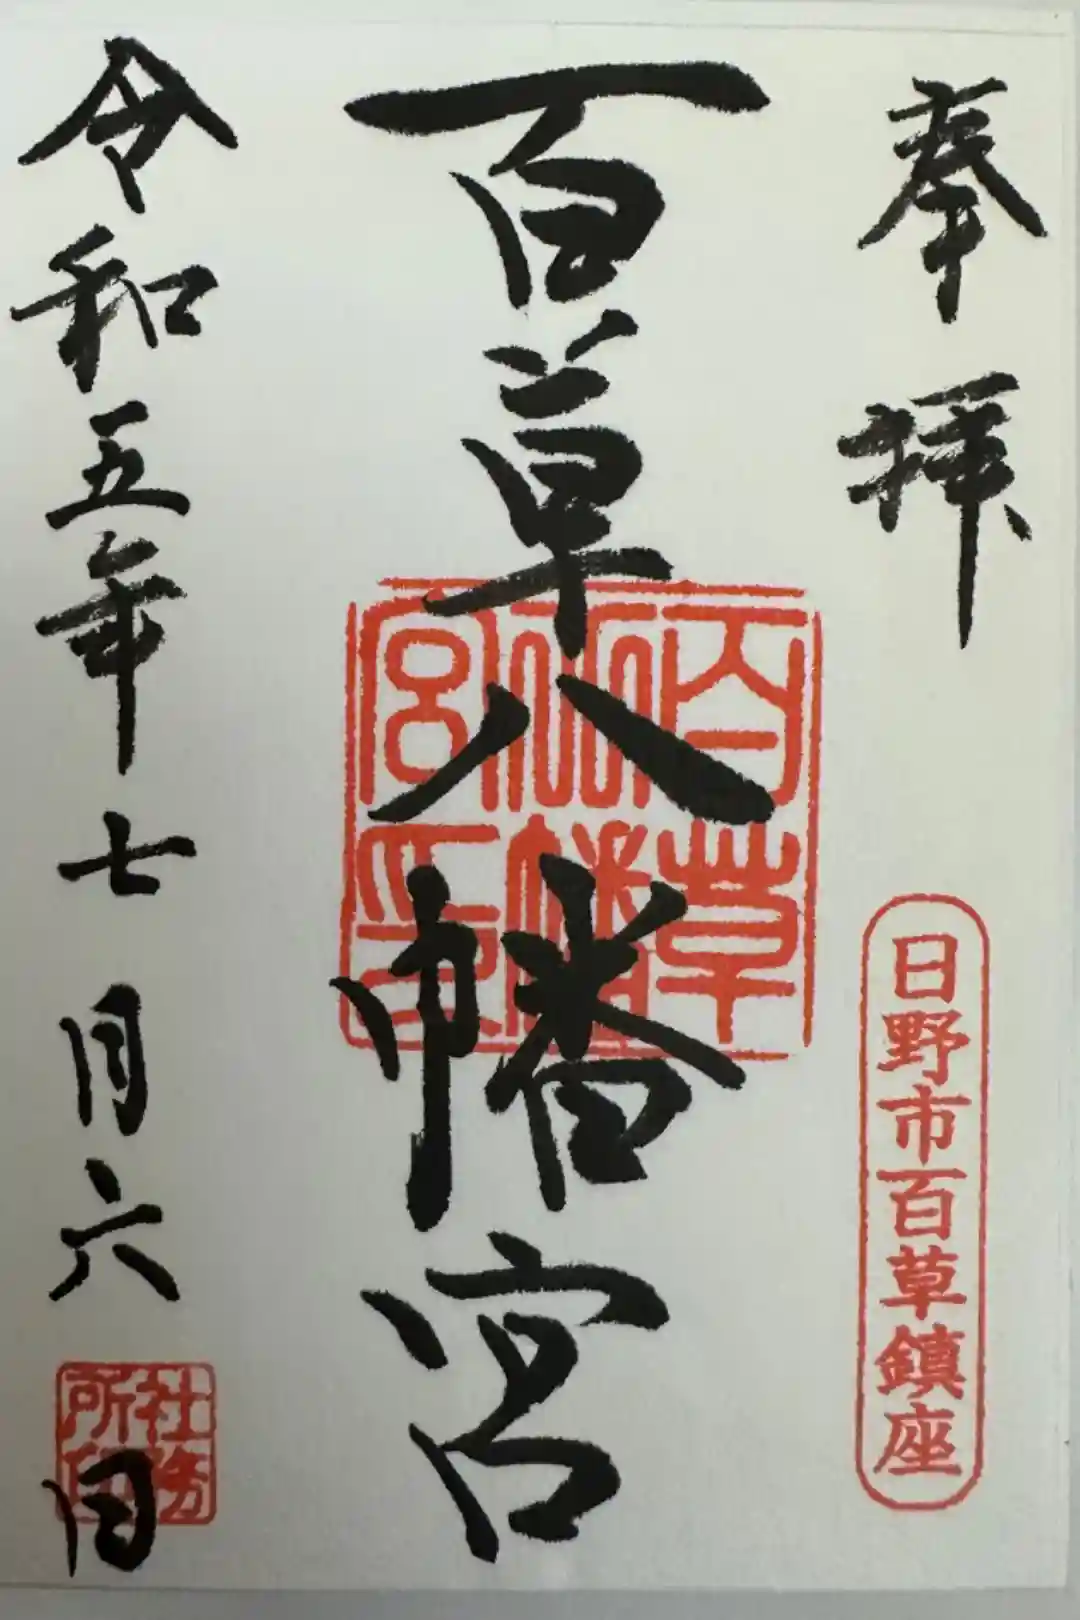 奉拝
日野市百草鎮座
百草八幡宮
百草八幡宮印
令和五年七月六日
社務所印